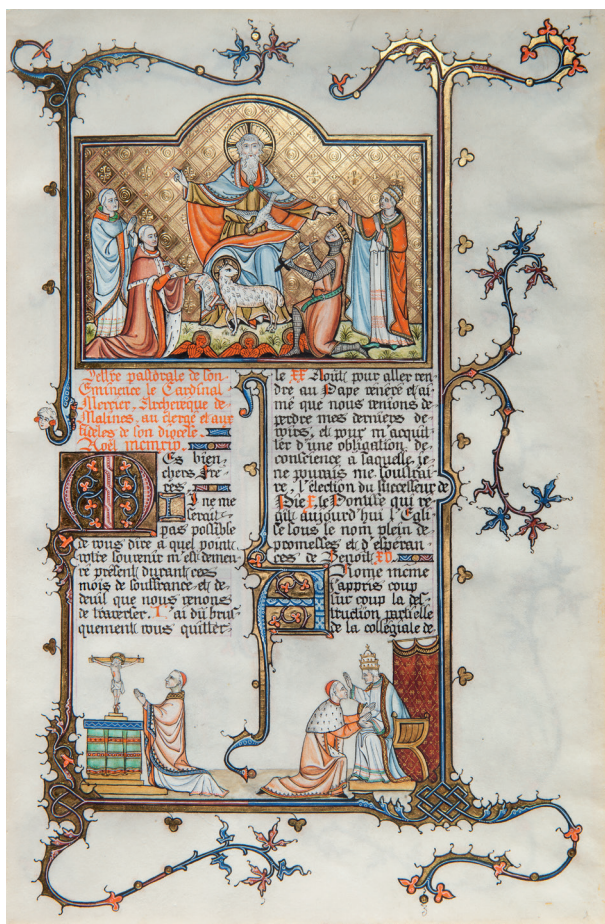 Lettre pastorale de son
Eminence le Cardinal
Mercier, Archeveque de
Malines, au clergé et aux
fideles de son diocese.
Noël mcmxiv
Mes bien
chers Fre-
res
Il ne me
serait
pas possible
de vous dire à quel point
votre souvenir m'est demeu-
ré présent durant ces
mois de souffrance et de
deuil que nous venons
de traverser. J'ai dû brus-
quement vous quitter
le XX Août pour aller ren-
dre au Pape vénéré et ai-
mé que nous venions de
perdre mes derniers de-
voirs, et pour m'acquit-
ter d'une obligation de
conscience à laquelle je
ne pouvais me soustrai-
re, l'élection du successeur de
Pie X, le Pontife qui re-
git aujourd'hui l'Egli-
se sous le nom plein de
promesses et d'espéran-
ces de Benoît XV
A Rome meme
j'appris coup
sur coup la des-
truction partielle
de la collégiale de